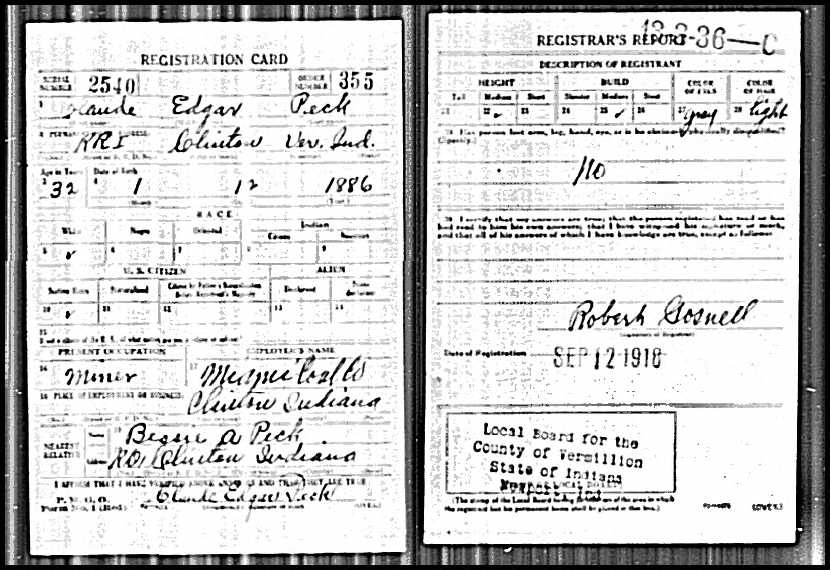 REGISTRATION CARD
SERIAL NUMBER 2540 ORDER NUMBER 355
1 Claude Edgar Peck
2 RR1 Clinton Ver. Ind.
Age in Years Date of Birth
3 32 4 1 12 1886
RACE
White Negro Oriental Indian
Citizen
5 ✓ 6 7 8 9
U. S. CITIZEN ALIEN
Native Born Naturalized Citizen by Father's Naturalization Before Registrant's Majority Declarant Non-declarant
10 ✓ 11 12 13 14
15
PRESENT OCCUPATION EMPLOYER'S NAME
16 Miner 17 Miami Coal Co
18 PLACE OF EMPLOYMENT OR BUSINESS
Clinton Indiana
NEAREST RELATIVE Name 19 Bessie A Peck
Address Clinton Indiana
I AFFIRM THAT I HAVE VERIFIED ABOVE ANSWERS AND THAT THEY ARE TRUE
P. M. G. O. Form No. 1 Claude Edgar Peck
REGISTRAR'S REPORT
DESCRIPTION OF REGISTRANT
HEIGHT BUILD COLOR OF EYES COLOR OF HAIR
Tall Medium Short Slender Medium Stout
21 22 ✓ 23 24 25 ✓ 26 27 gray 28 light
29 Has person lost arm, leg, hand, eye, or is he obviously physically disqualified?
(Specify.)
No
30 I certify that my answers are true; that the person registered has read or has
had read to him his own answers; that I have witnessed his signature or mark,
and that all of his answers of which I have knowledge are true, except as follows:
Robert Gosnell
Date of Registration SEP 12 1918
Local Board for the
County of Vermillion
State of Indiana
(The stamp of the Local Board having jurisdiction of the area in which
the registrant has his permanent home shall be placed in this box.)